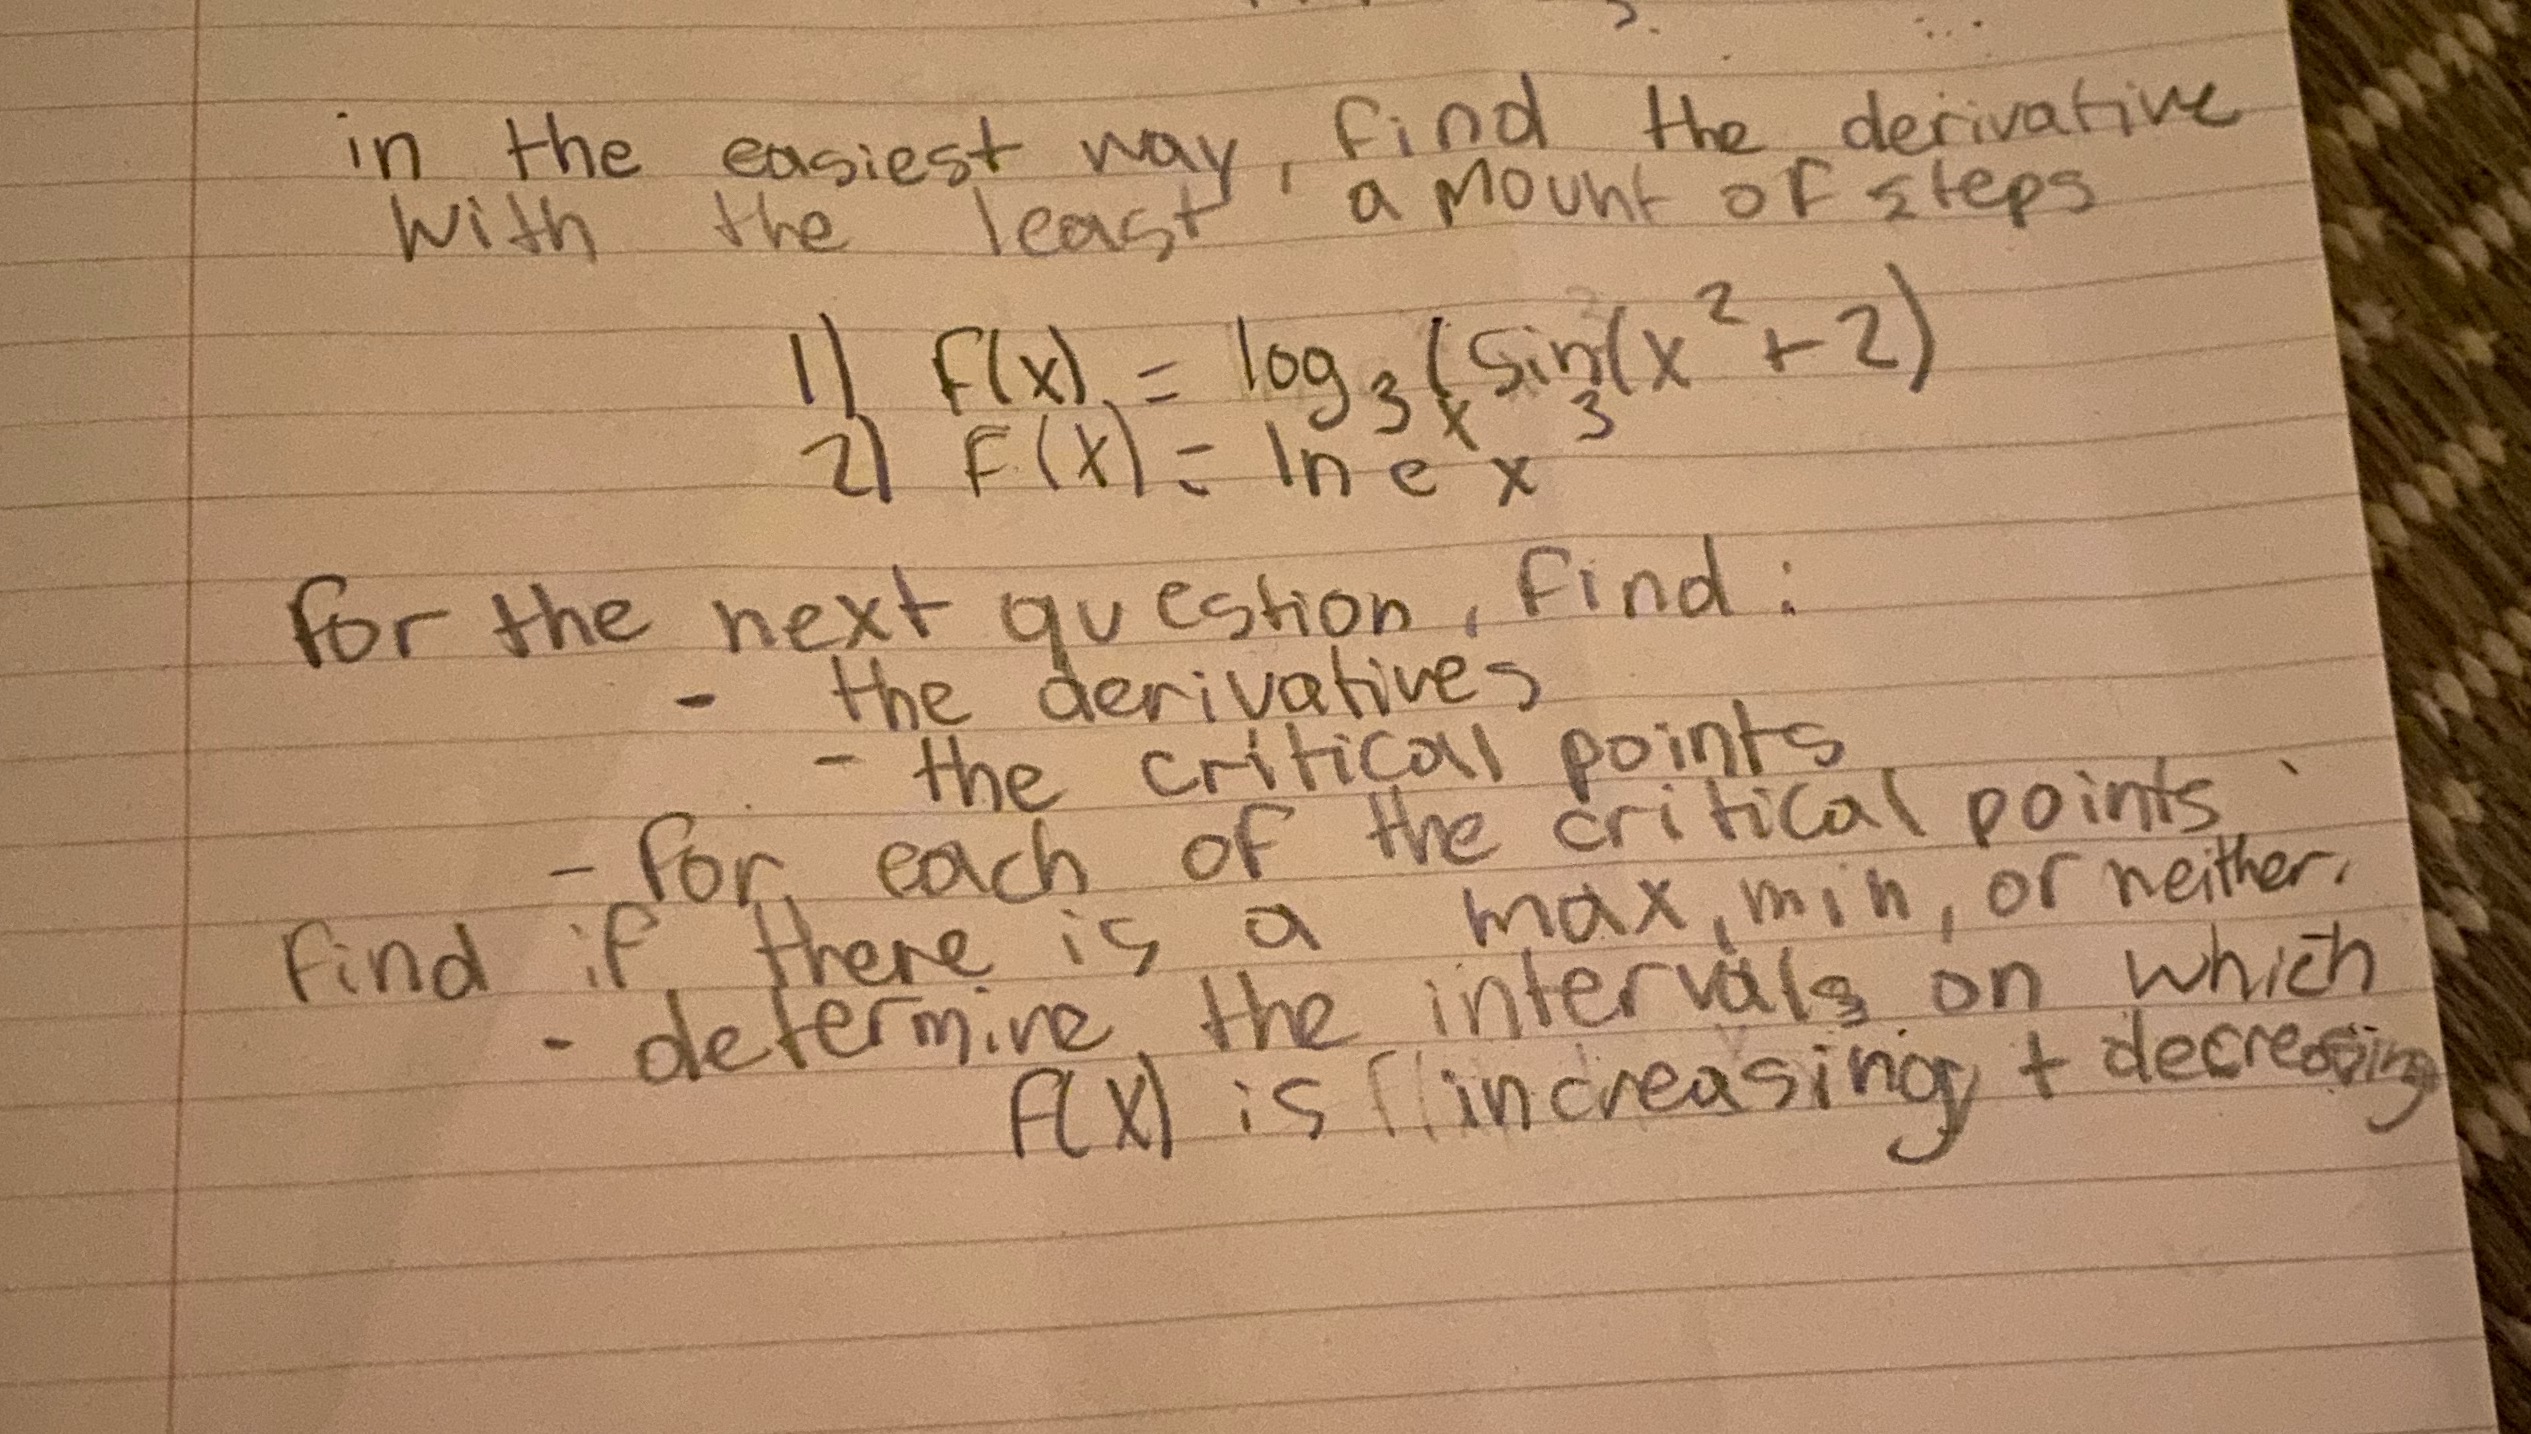 in the easiest way, find the derivative
with the least amount of steps
1) f(x) = log₃(sin(x²+2)
2) F(x) = ln eˣ x³
for the next question, find:
- the derivatives
- the critical points
- for each of the critical points
find if there is a max, min, or neither.
- determine the intervals on which
f(x) is increasing + decreasing